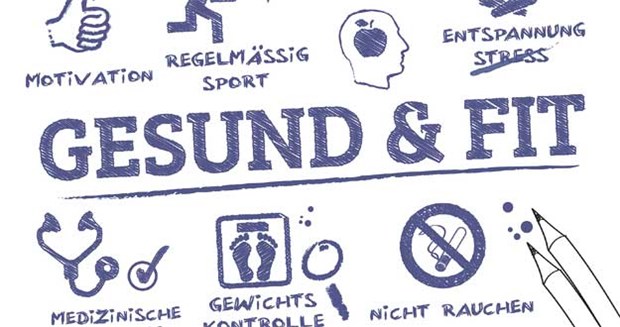 MOTIVATION
REGELMÄSSIG
SPORT
ENTSPANNUNG
STRESS
GESUND & FIT
MEDIZINISCHE
GEWICHTS
KONTROLLE
NICHT RAUCHEN